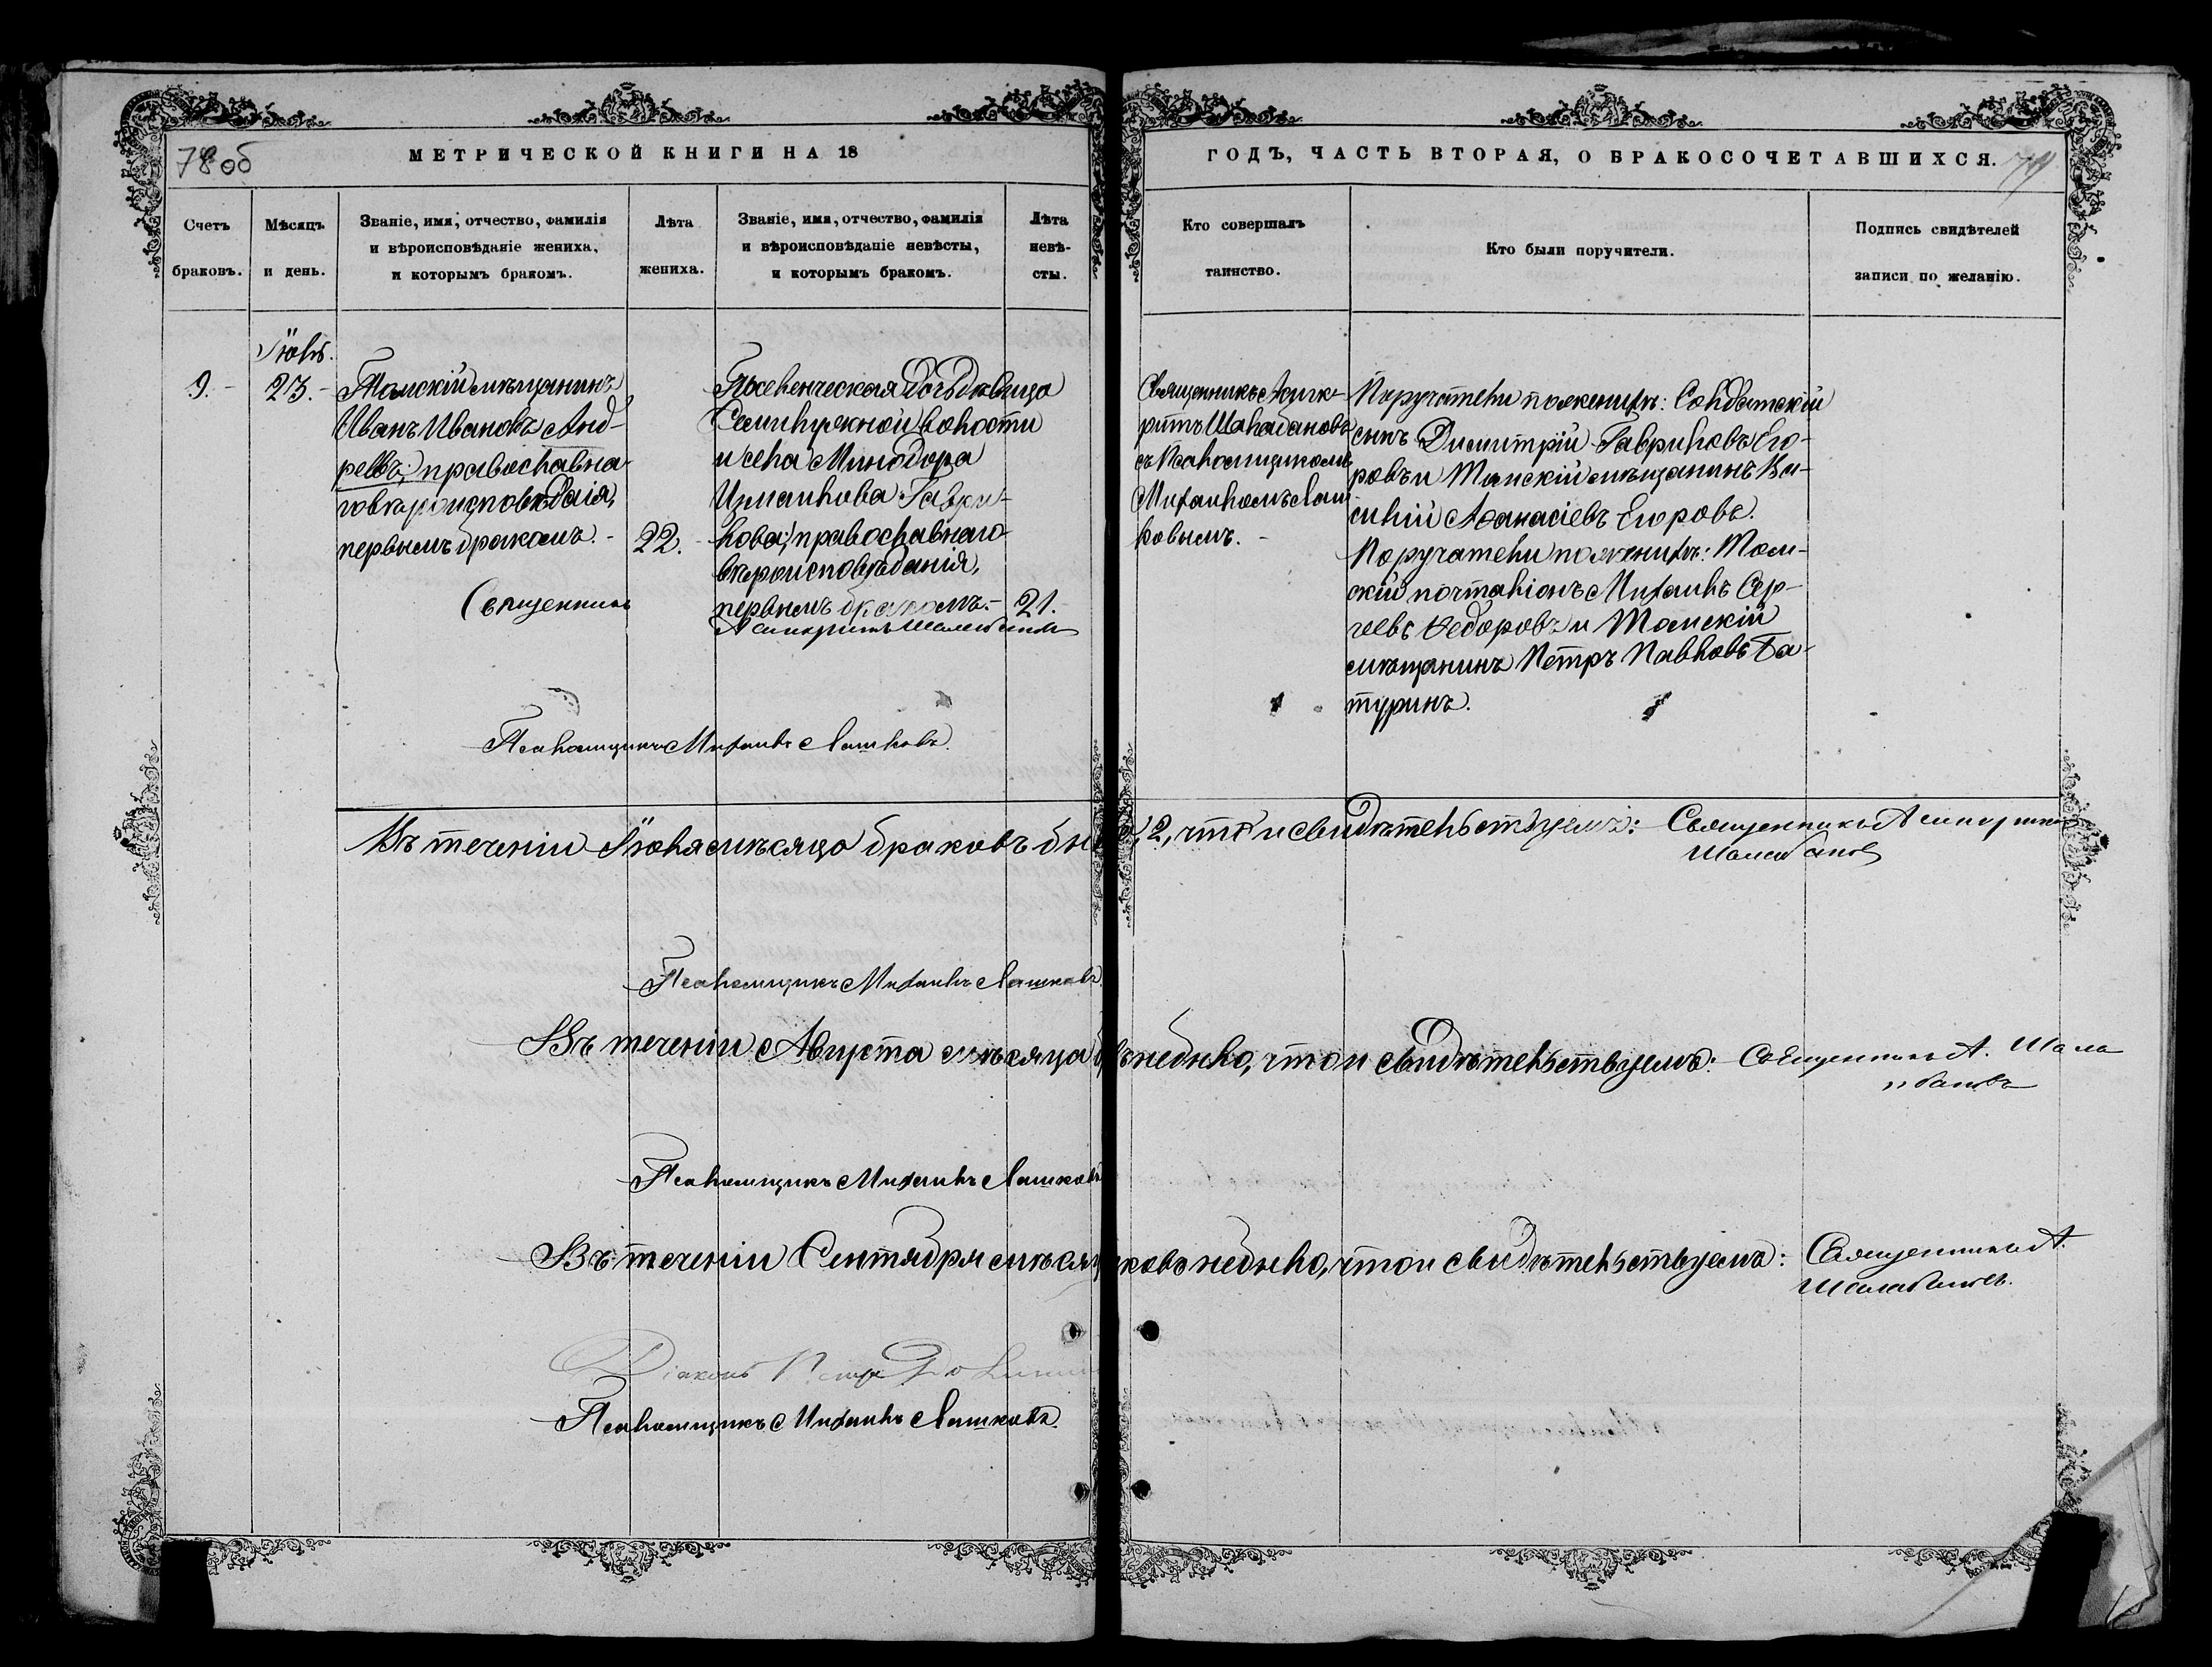 78 об
МЕТРИЧЕСКОЙ КНИГИ НА 18
ГОДЪ, ЧАСТЬ ВТОРАЯ, О БРАКОСОЧЕТАВШИХСЯ.
79
Счетъ
браковъ.
Мѣсяцъ
и день.
Званіе, имя, отчество, фамилія
и вѣроисповѣданіе жениха,
и которымъ бракомъ.
Лѣта
жениха.
Званіе, имя, отчество, фамилія
и вѣроисповѣданіе невѣсты,
и которымъ бракомъ.
Лѣта
невѣ-
сты.
Кто совершалъ
таинство.
Кто были поручители.
Подпись свидѣтелей
записи по желанію.
9.-
23.-
Томскій мѣщанинъ
Иванъ Ивановъ Анд-
реевъ, православна-
го вѣроисповѣдаія,
первымъ бракомъ.-
22.
дочь дѣвица
Семилужной волости
и села Минодора
Измаилова Гаври-
лова, православнаго
вѣроисповѣданія,
первымъ бракомъ.-
21.
Священникъ Асинк-
ритъ Шалабановъ
съ Псаломщикомъ
Михаиломъ Лаш-
ковымъ.-
Поручатели по женихѣ: Солдатскій
сынъ Димитрій Гавриловъ Его-
ровъ и Томскій мѣщанинъ Ва-
силій Афанасіевъ Егоровъ.
Поручатели по женихѣ: Том-
скій почталіонъ Михаилъ Сер-
геевъ Федоровъ и Томскій
мѣщанинъ Петръ Павловъ Ба-
туринъ.
Священникъ
Асинкритъ Шалабановъ
Псаломщикъ Михаилъ Лашковъ.
Въ теченіи Іюля мѣсяца браковъ бы
2, что и свидѣтельствуемъ: Священникъ Асинкритъ
Шалабановъ
Псаломщикъ Михаилъ Лашковъ
Въ теченіи Августа мѣсяца
не было, что и свидѣтельствуемъ: Священникъ А. Шала-
бановъ
Псаломщикъ Михаилъ Лашковъ
Въ теченіи Сентября мѣсяц
ковъ не было, что и свидѣтельствуемъ: Священникъ А.
Шалабановъ.
Діаконъ Петръ
Псаломщикъ Михаилъ Лашковъ.